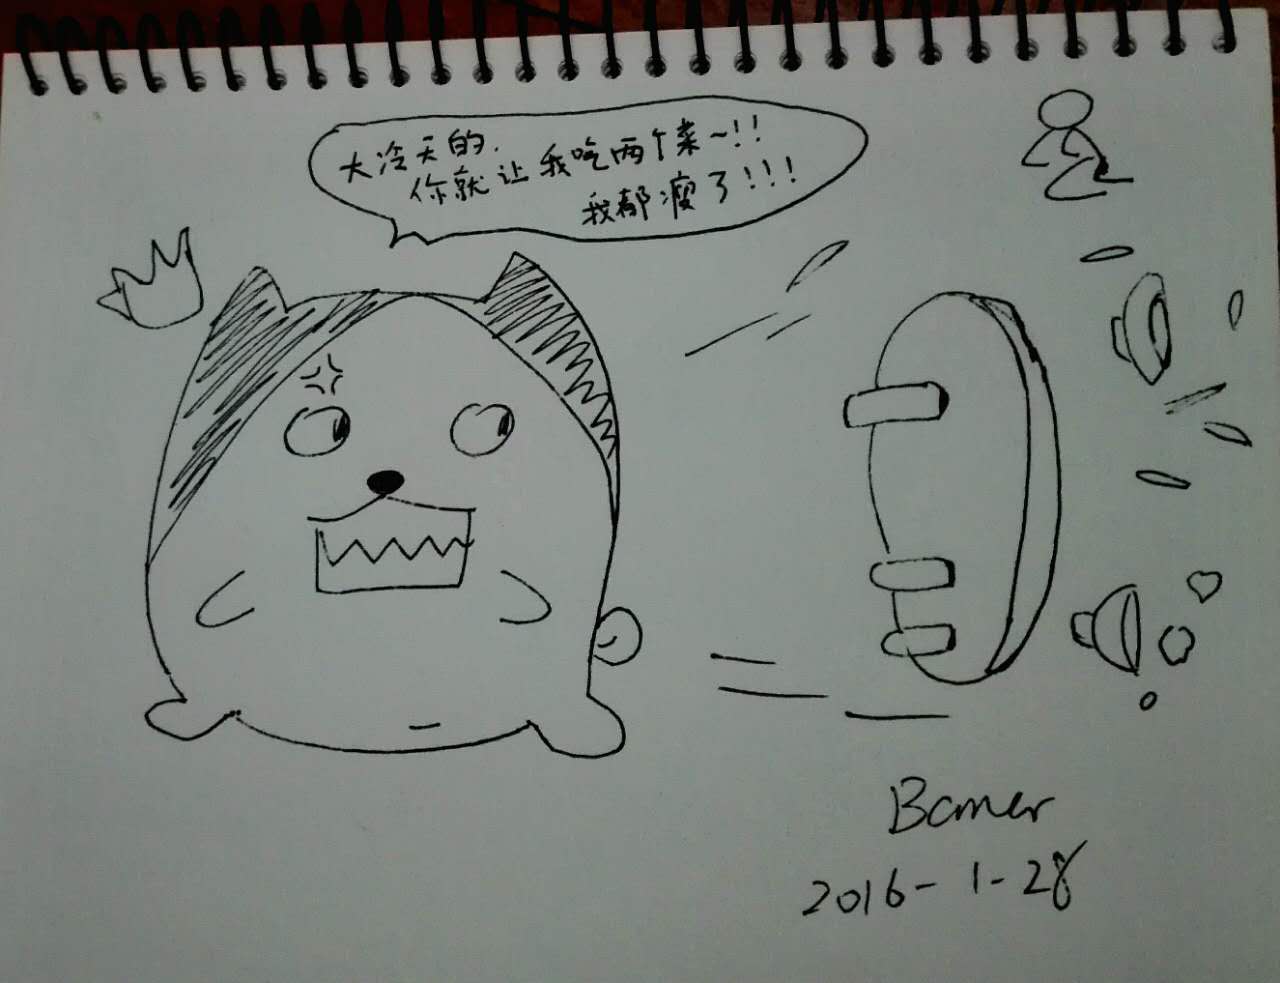 大冷天的.
你就让我吃两个菜~!!
我都瘦了!!!
Bcmer
2016-1-28